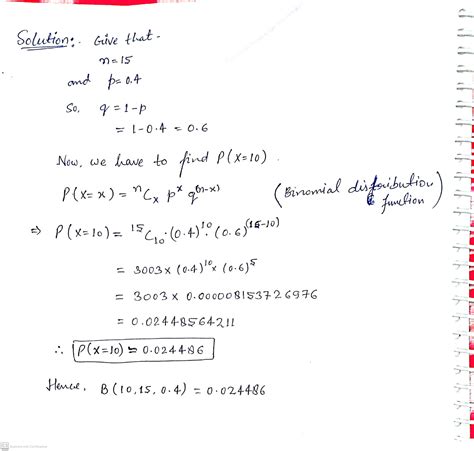 Solution:- Give that -
n = 15
and p = 0.4
So, q = 1-p
= 1-0.4 = 0.6
Now, we have to find P(X=10).
P(X=x) = ⁿCₓ pˣ q⁽ⁿ⁻ˣ⁾ (Binomial distribution function)
⇒ P(X=10) = ¹⁵C₁₀·(0.4)¹⁰·(0.6)⁽¹⁵⁻¹⁰⁾
= 3003 x (0.4)¹⁰ x (0.6)⁵
= 3003 x 0.000008153726976
= 0.02448564211
∴ P(X=10) = 0.024486
Hence, B(10,15,0.4) = 0.024486